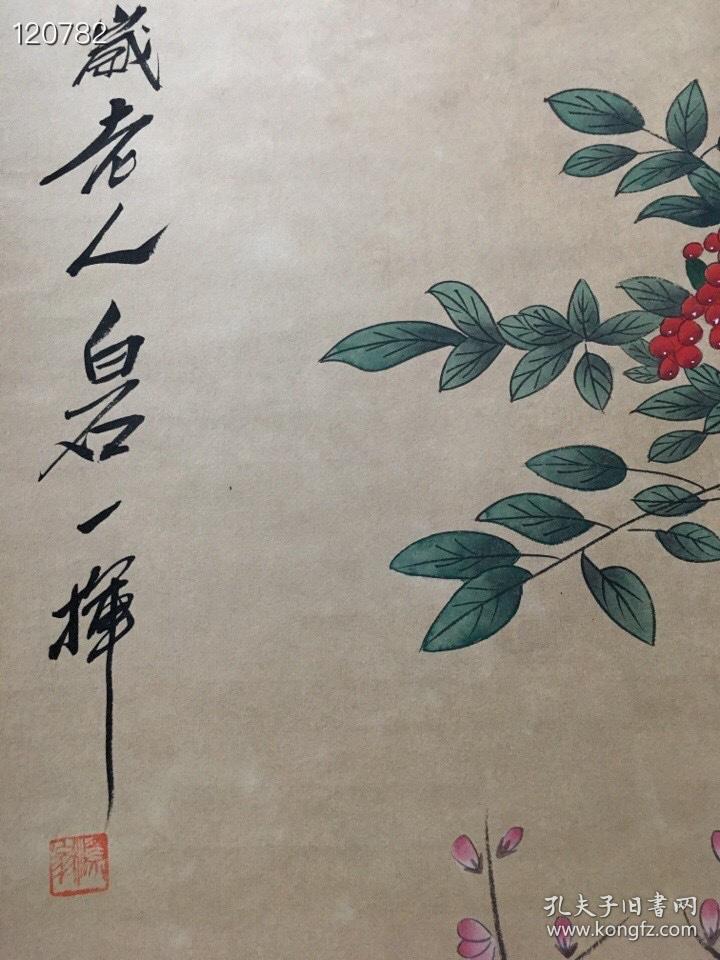 120782
歲老人白石一揮
孔夫子旧书网
www.kongfz.com